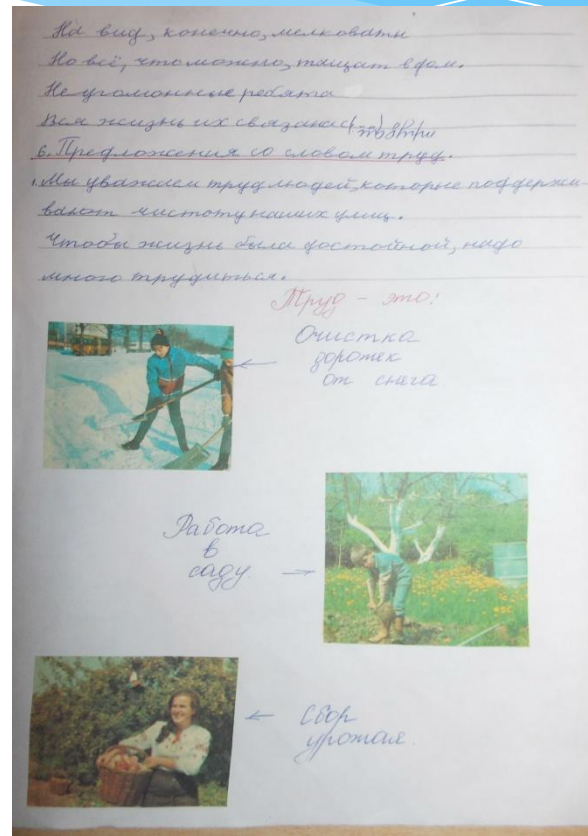 На вид, конечно, мелковаты
Но всё, что можно, тащат в дом.
Не угомонные ребята
Вся жизнь их связана с
6. Предложения со словом труд.
1. Мы уважаем труд людей, которые поддержи-
вают чистоту наших улиц.
Чтобы жизнь была достойной, надо
много трудиться.
Труд - это:
Очистка
дорожек
от снега
Работа
в
саду.
Сбор
урожая.